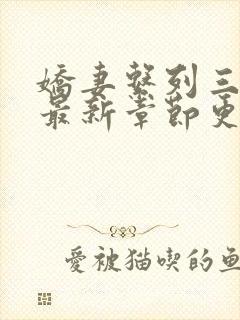 嬌妻繫列三
最新章節更
愛被猫喫的魚